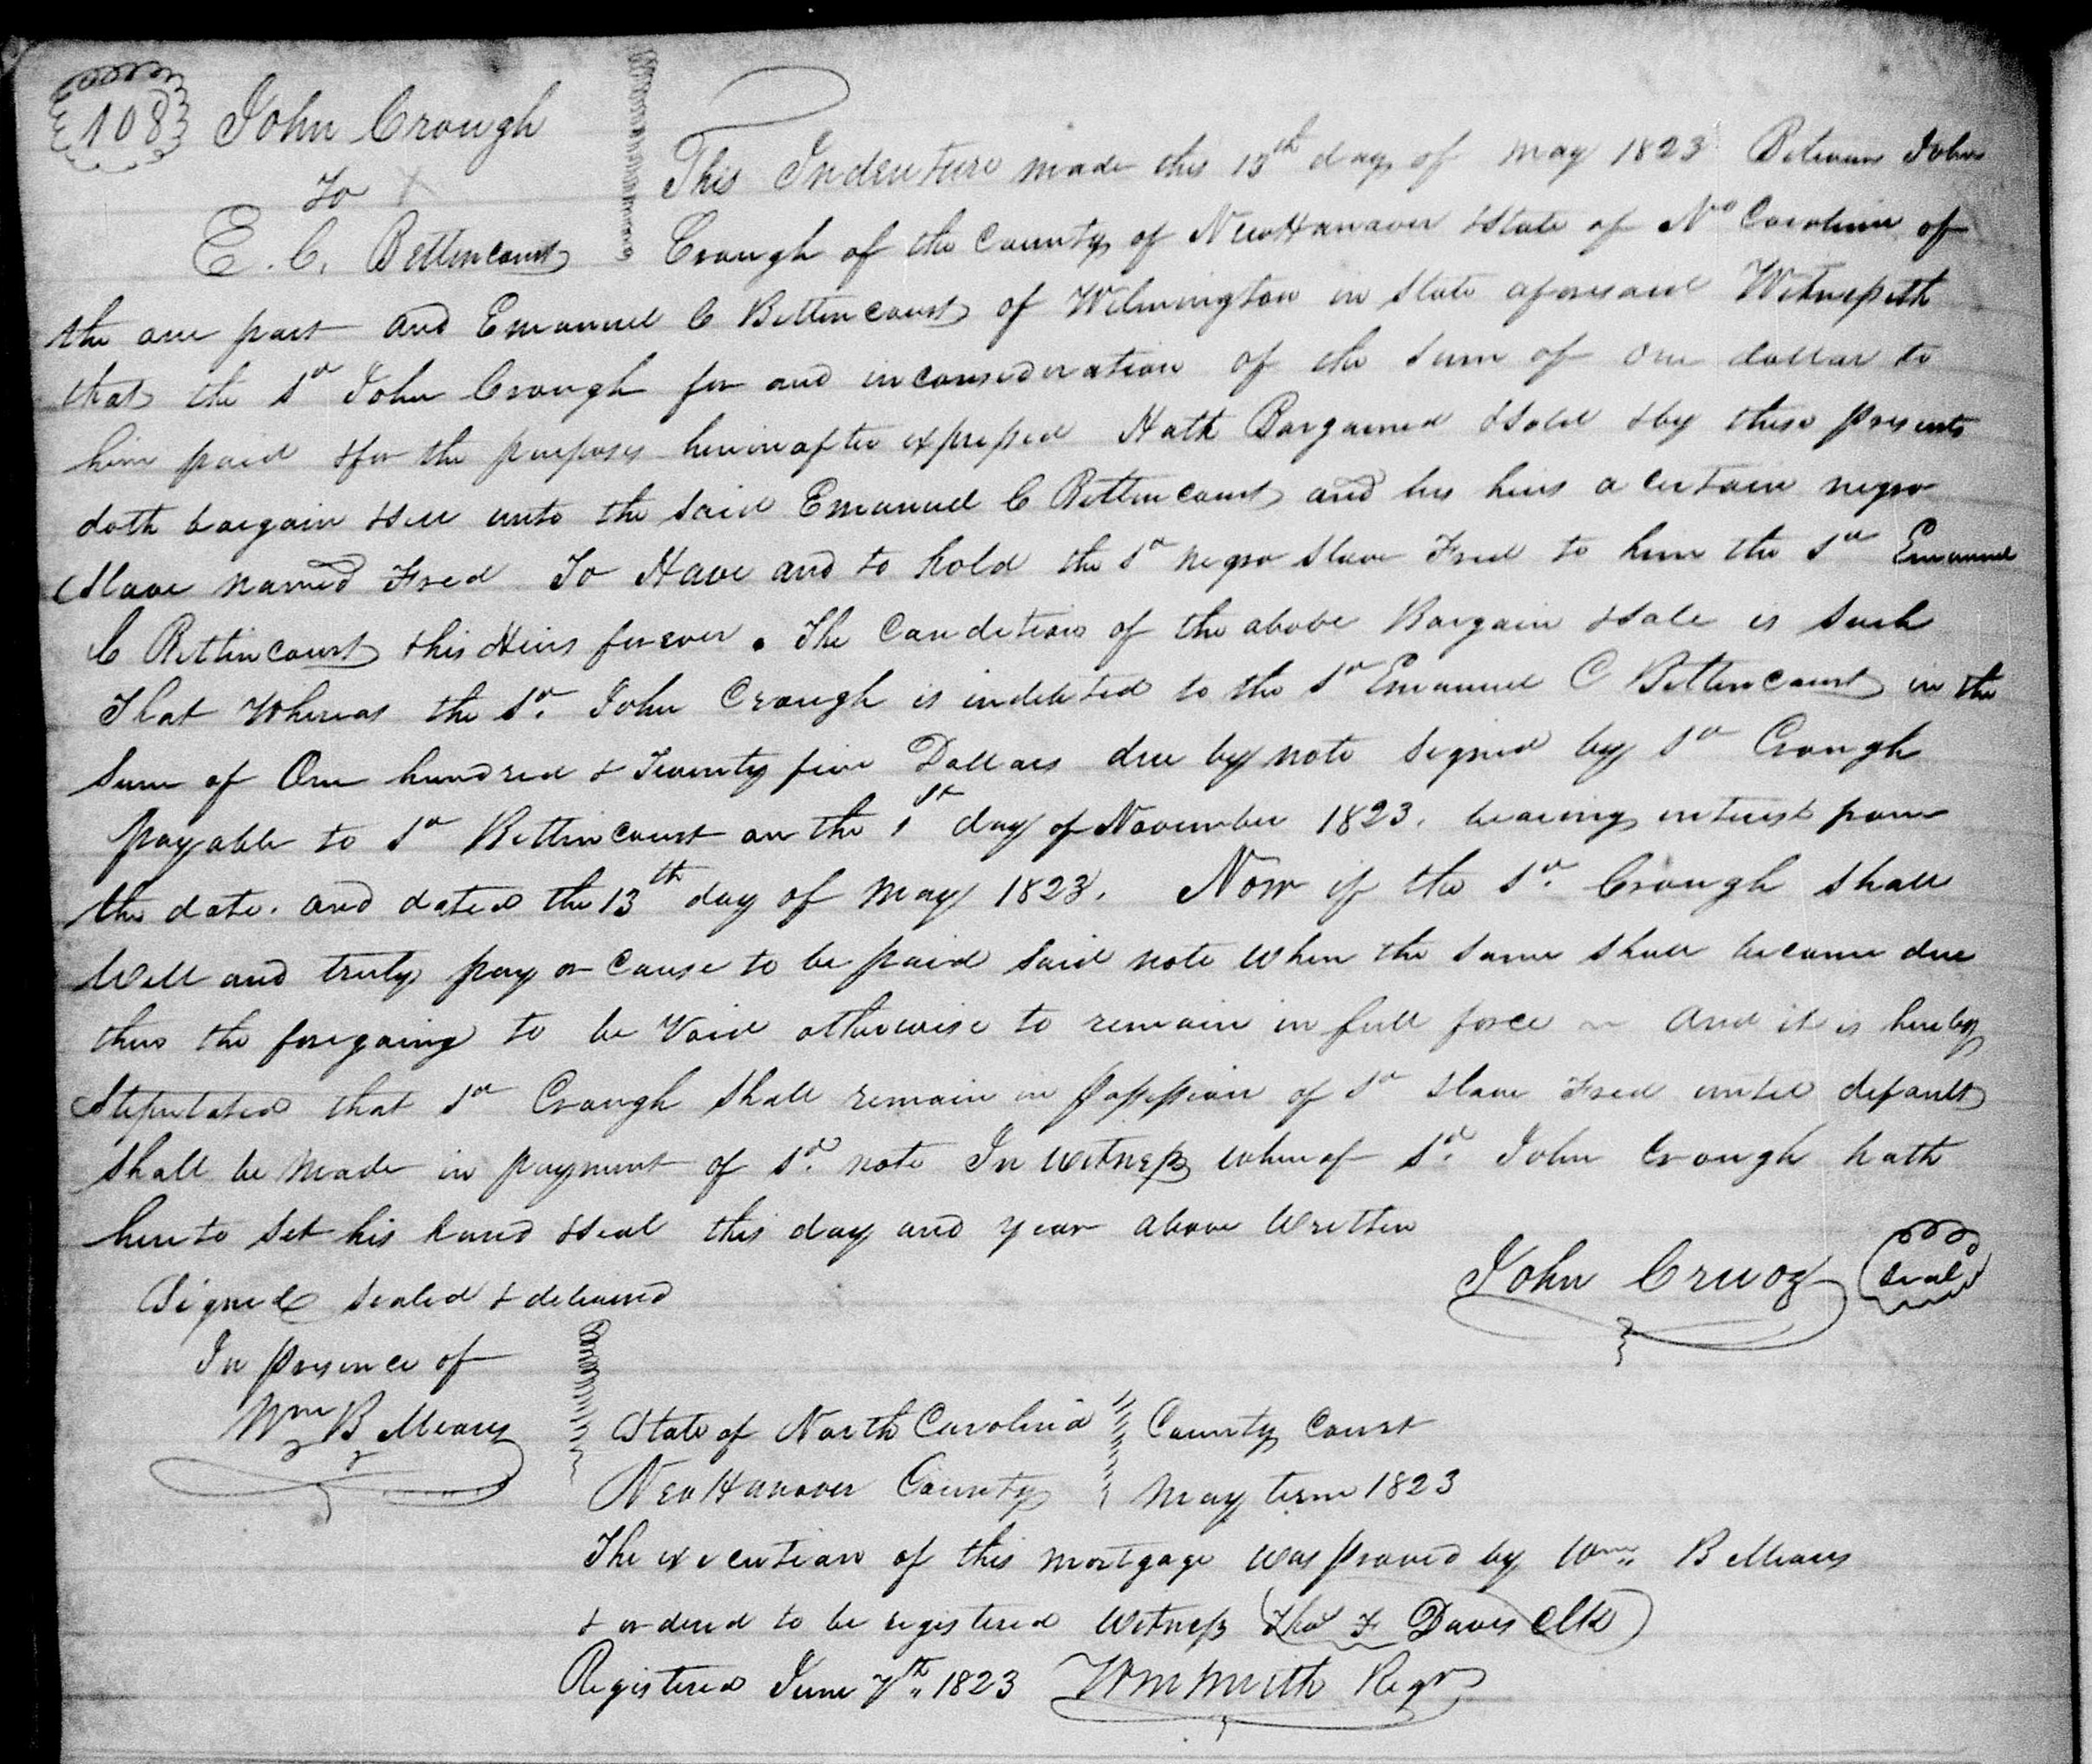 108 John Crough
To
E. C. Bettencourt
This Indenture made this 13th day of May 1823 Between John
Crough of the County of New Hanover & State of No Carolina of
the one part and Emanuel C Bettencourt of Wilmington in State aforesaid Witnesseth
that the sd John Crough for and in consideration of the sum of one dollar to
him paid & for the purposes hereinafter expressed Hath Bargained & Sold & by these presents
doth bargain & sell unto the said Emanuel C Bettencourt and his heirs a certain negro
Slave named Fred To Have and to hold the sd negro slave Fred to him the sd Emanuel
C Bettencourt & his Heirs forever. The Condition of the above Bargain & Sale is such
That Whereas the sd. John Crough is indebted to the sd Emanuel C Bettencourt in the
Sum of One hundred & Seventy five Dollars due by note signed by sd Crough
payable to sd Bettencourt on the 1st day of November 1823. bearing interest from
the date. and dated the 13th day of May 1823. Now if the sd. Crough shall
Well and truly pay or cause to be paid said note when the same shall become due
then the foregoing to be Void otherwise to remain in full force ~ And it is hereby
Stipulated that sd Crough shall remain in possession of sd slave Fred until default
shall be made in payment of sd. note In Witness whereof sd. John Crough hath
hereto set his hand & seal this day and year above Written
Signed sealed & delivered
John Cruoz Seal
In presence of
Wm B Meares
State of North Carolina County Court
New Hanover County May term 1823
The execution of this mortgage was proved by Wm. B Meares
& ordered to be registered Witness Tho F Davis Clk
Registered June 7th. 1823 Regr